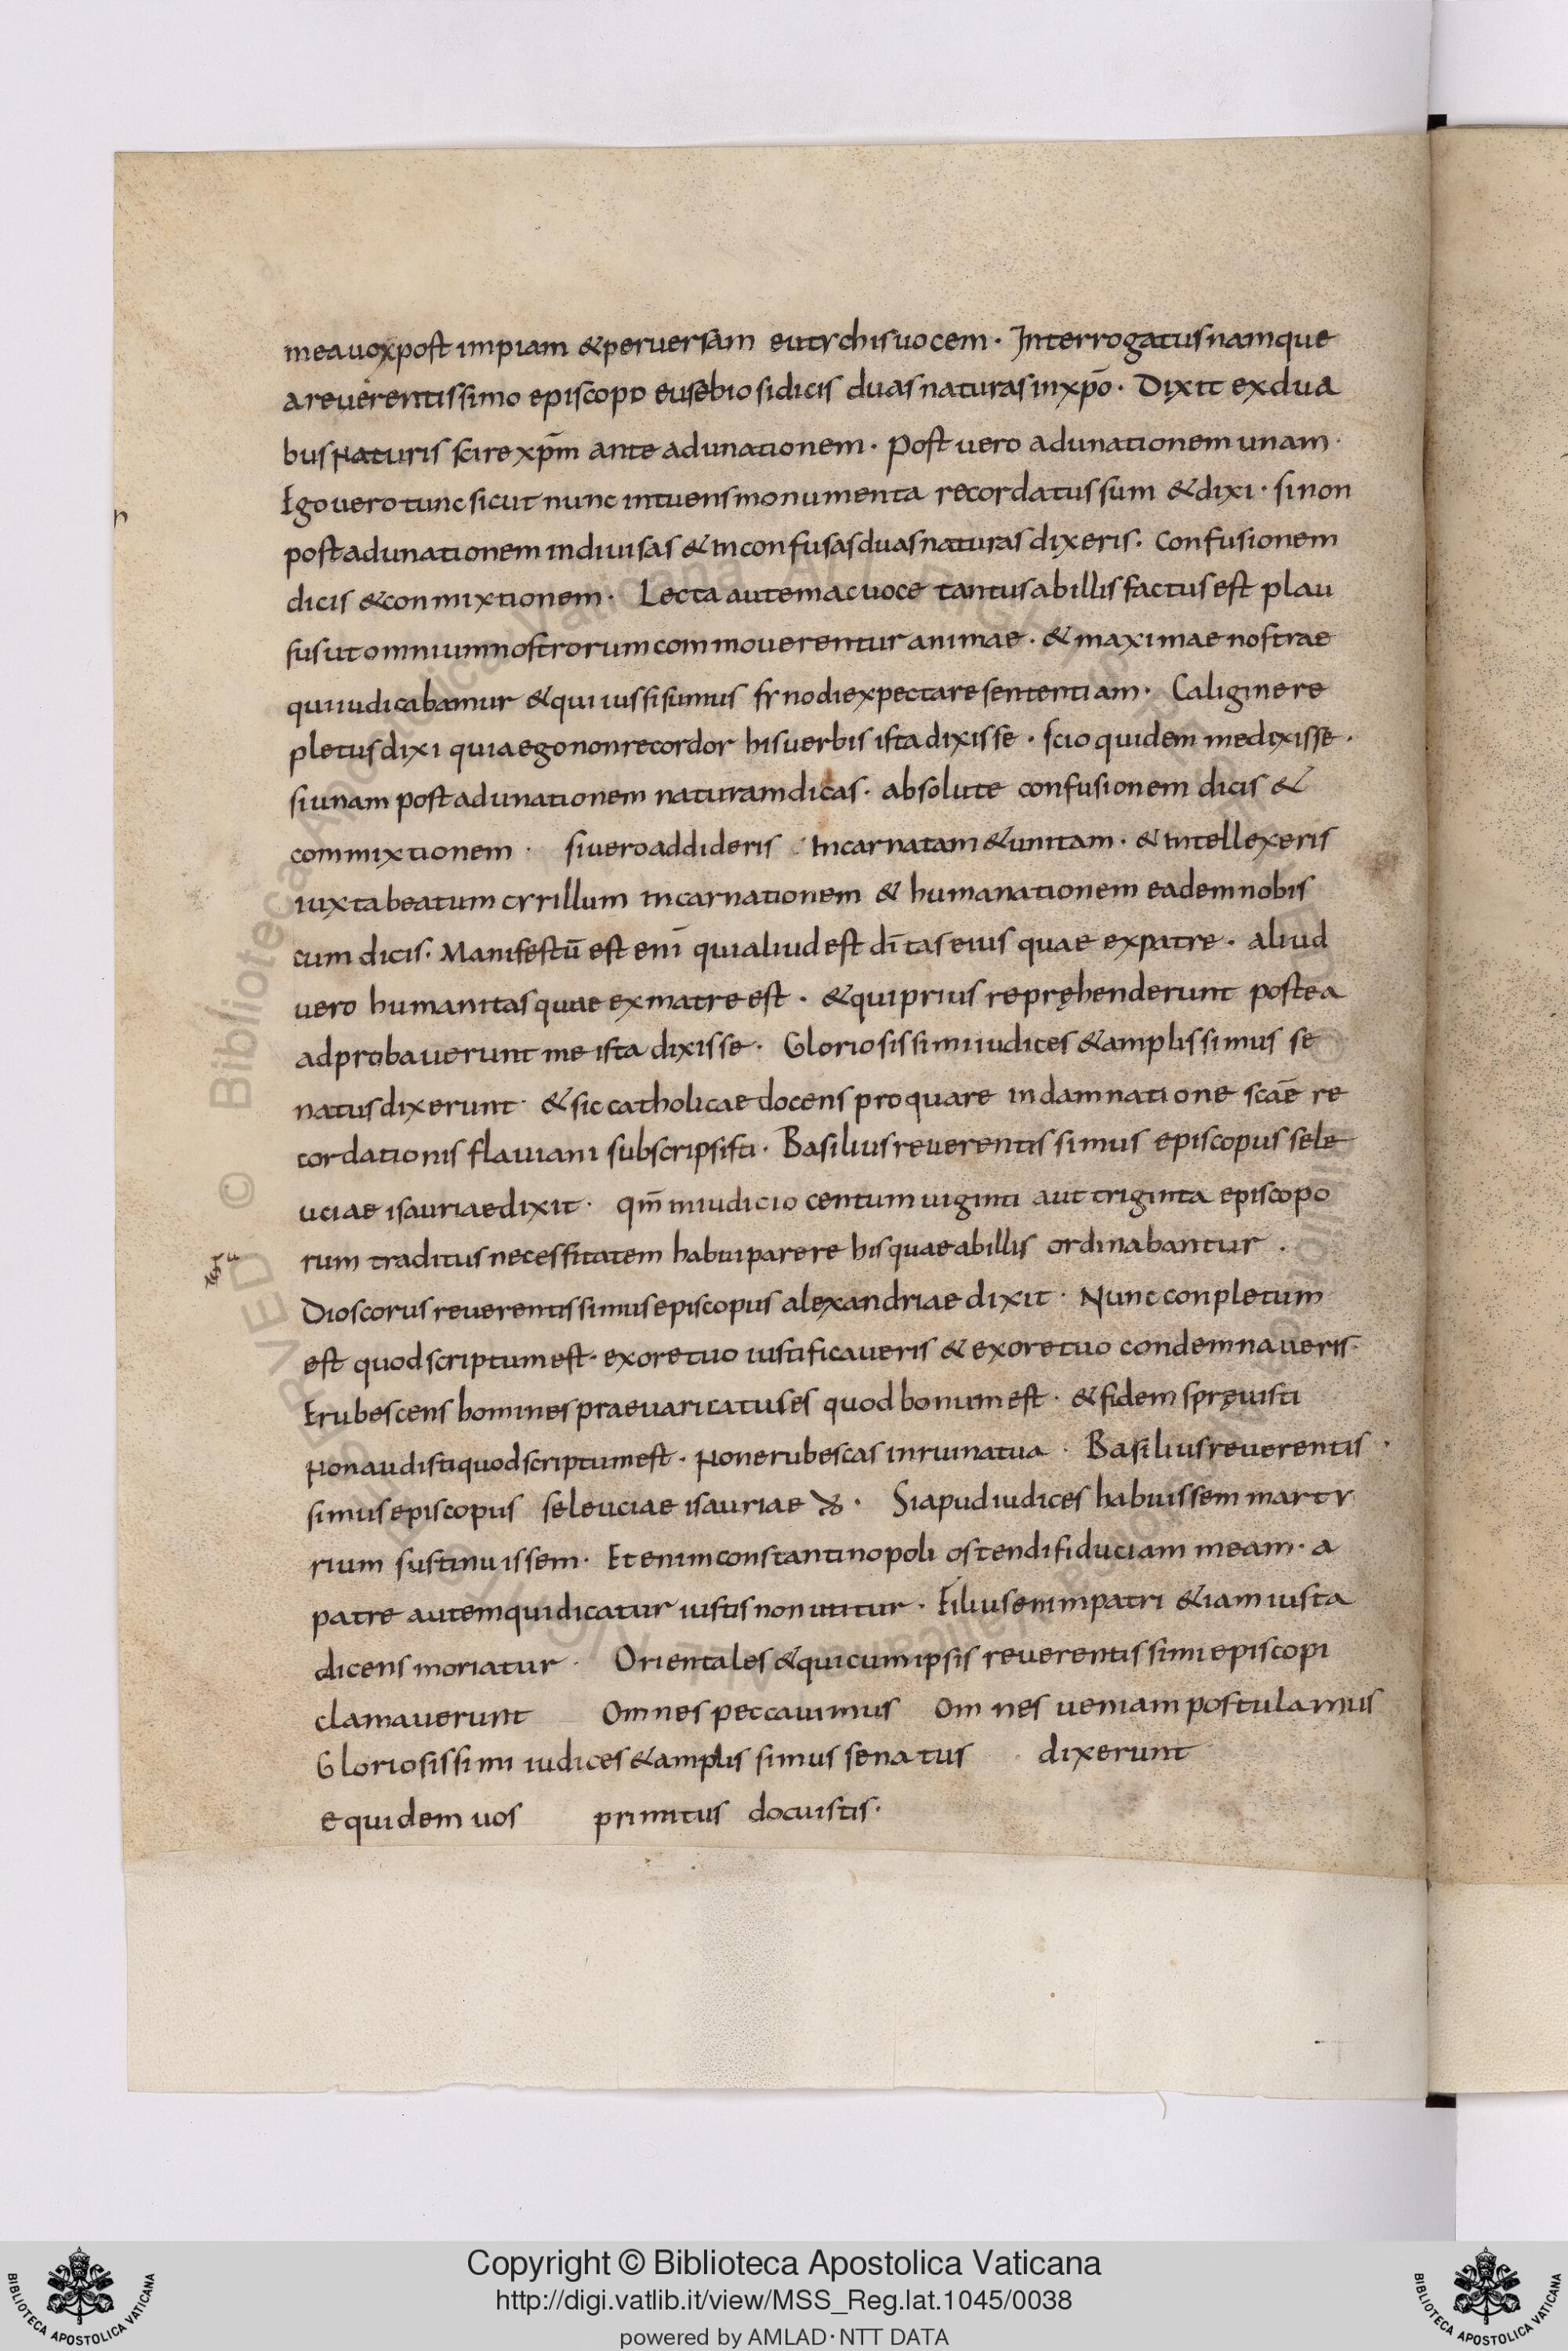 mea uox post impiam & peruersam eutychis uocem · Interrogatus namque
a reuerentissimo episcopo eusebio si dicis duas naturas in xp̄o · Dixit ex dua
bus naturis scire xp̄m ante adunationem · post uero adunationem unam ·
Ego uero tunc sicut nunc intuens monumenta recordatus sum & dixi · si non
post adunationem indiuisas & inconfusas duas naturas dixeris · confusionem
dicis & conmixtionem · Lecta autem ac uoce tantus ab illis factus est plau
sus ut omnium nostrorum commouerentur animae · & maximae nostrae
qui iudicabamur & qui iussi sumus synodi expectare sententiam · Caligine re
pletus dixi quia ego non recordor his uerbis ista dixisse · scio quidem me dixisse ·
si unam post adunationem naturam dicas · absolute confusionem dicis &
commixtionem · si uero addideris incarnatam & unitam · & intellexeris
iuxta beatum cyrillum incarnationem & humanationem eadem nobis
cum dicis · Manifestū est enī qui aliud est dītas eius quae ex patre · aliud
uero humanitas quae ex matre est · & qui prius repręhenderunt postea
adprobauerunt me ista dixisse · Gloriosissimi iudices & amplissimus se
natus dixerunt · & sic catholicae docens pro quare in damnatione scāe re
cordationis flauiani subscripsisti · Basilius reuerentissimus episcopus sele
uciae isauriae dixit · qm̄ in iudicio centum uiginti aut triginta episcopo
rum traditus necessitatem habui parere his quae ab illis ordinabantur ·
Dioscorus reuerentissimus episcopus alexandriae dixit · Nunc conpletum
est quod scriptum est · ex ore tuo iustificaueris & ex ore tuo condemnaueris ·
Erubescens homines praeuaricatus es quod bonum est · & fidem spręuisti
Non audisti quod scriptum est · Non erubescas in ruina tua · Basilius reuerentis ·
simus episcopus seleuciae isauriae · Si apud iudices habuissem marty
rium sustinuissem · Etenim constantinopoli ostendi fiduciam meam · a
patre autem qui dicatur iustis non utitur · Filius enim patri &iam iusta
dicens moriatur · Orientales & qui cum ipsis reuerentissimi episcopi
clamauerunt Omnes peccauimus Omnes ueniam postulamus
Gloriosissimi iudices & amplissimus senatus dixerunt
equidem uos primitus docuistis ·
Copyright © Biblioteca Apostolica Vaticana
http://digi.vatlib.it/view/MSS_Reg.lat.1045/0038
powered by AMLAD · NTT DATA
BIBLIOTECA APOSTOLICA VATICANA
BIBLIOTECA APOSTOLICA VATICANA